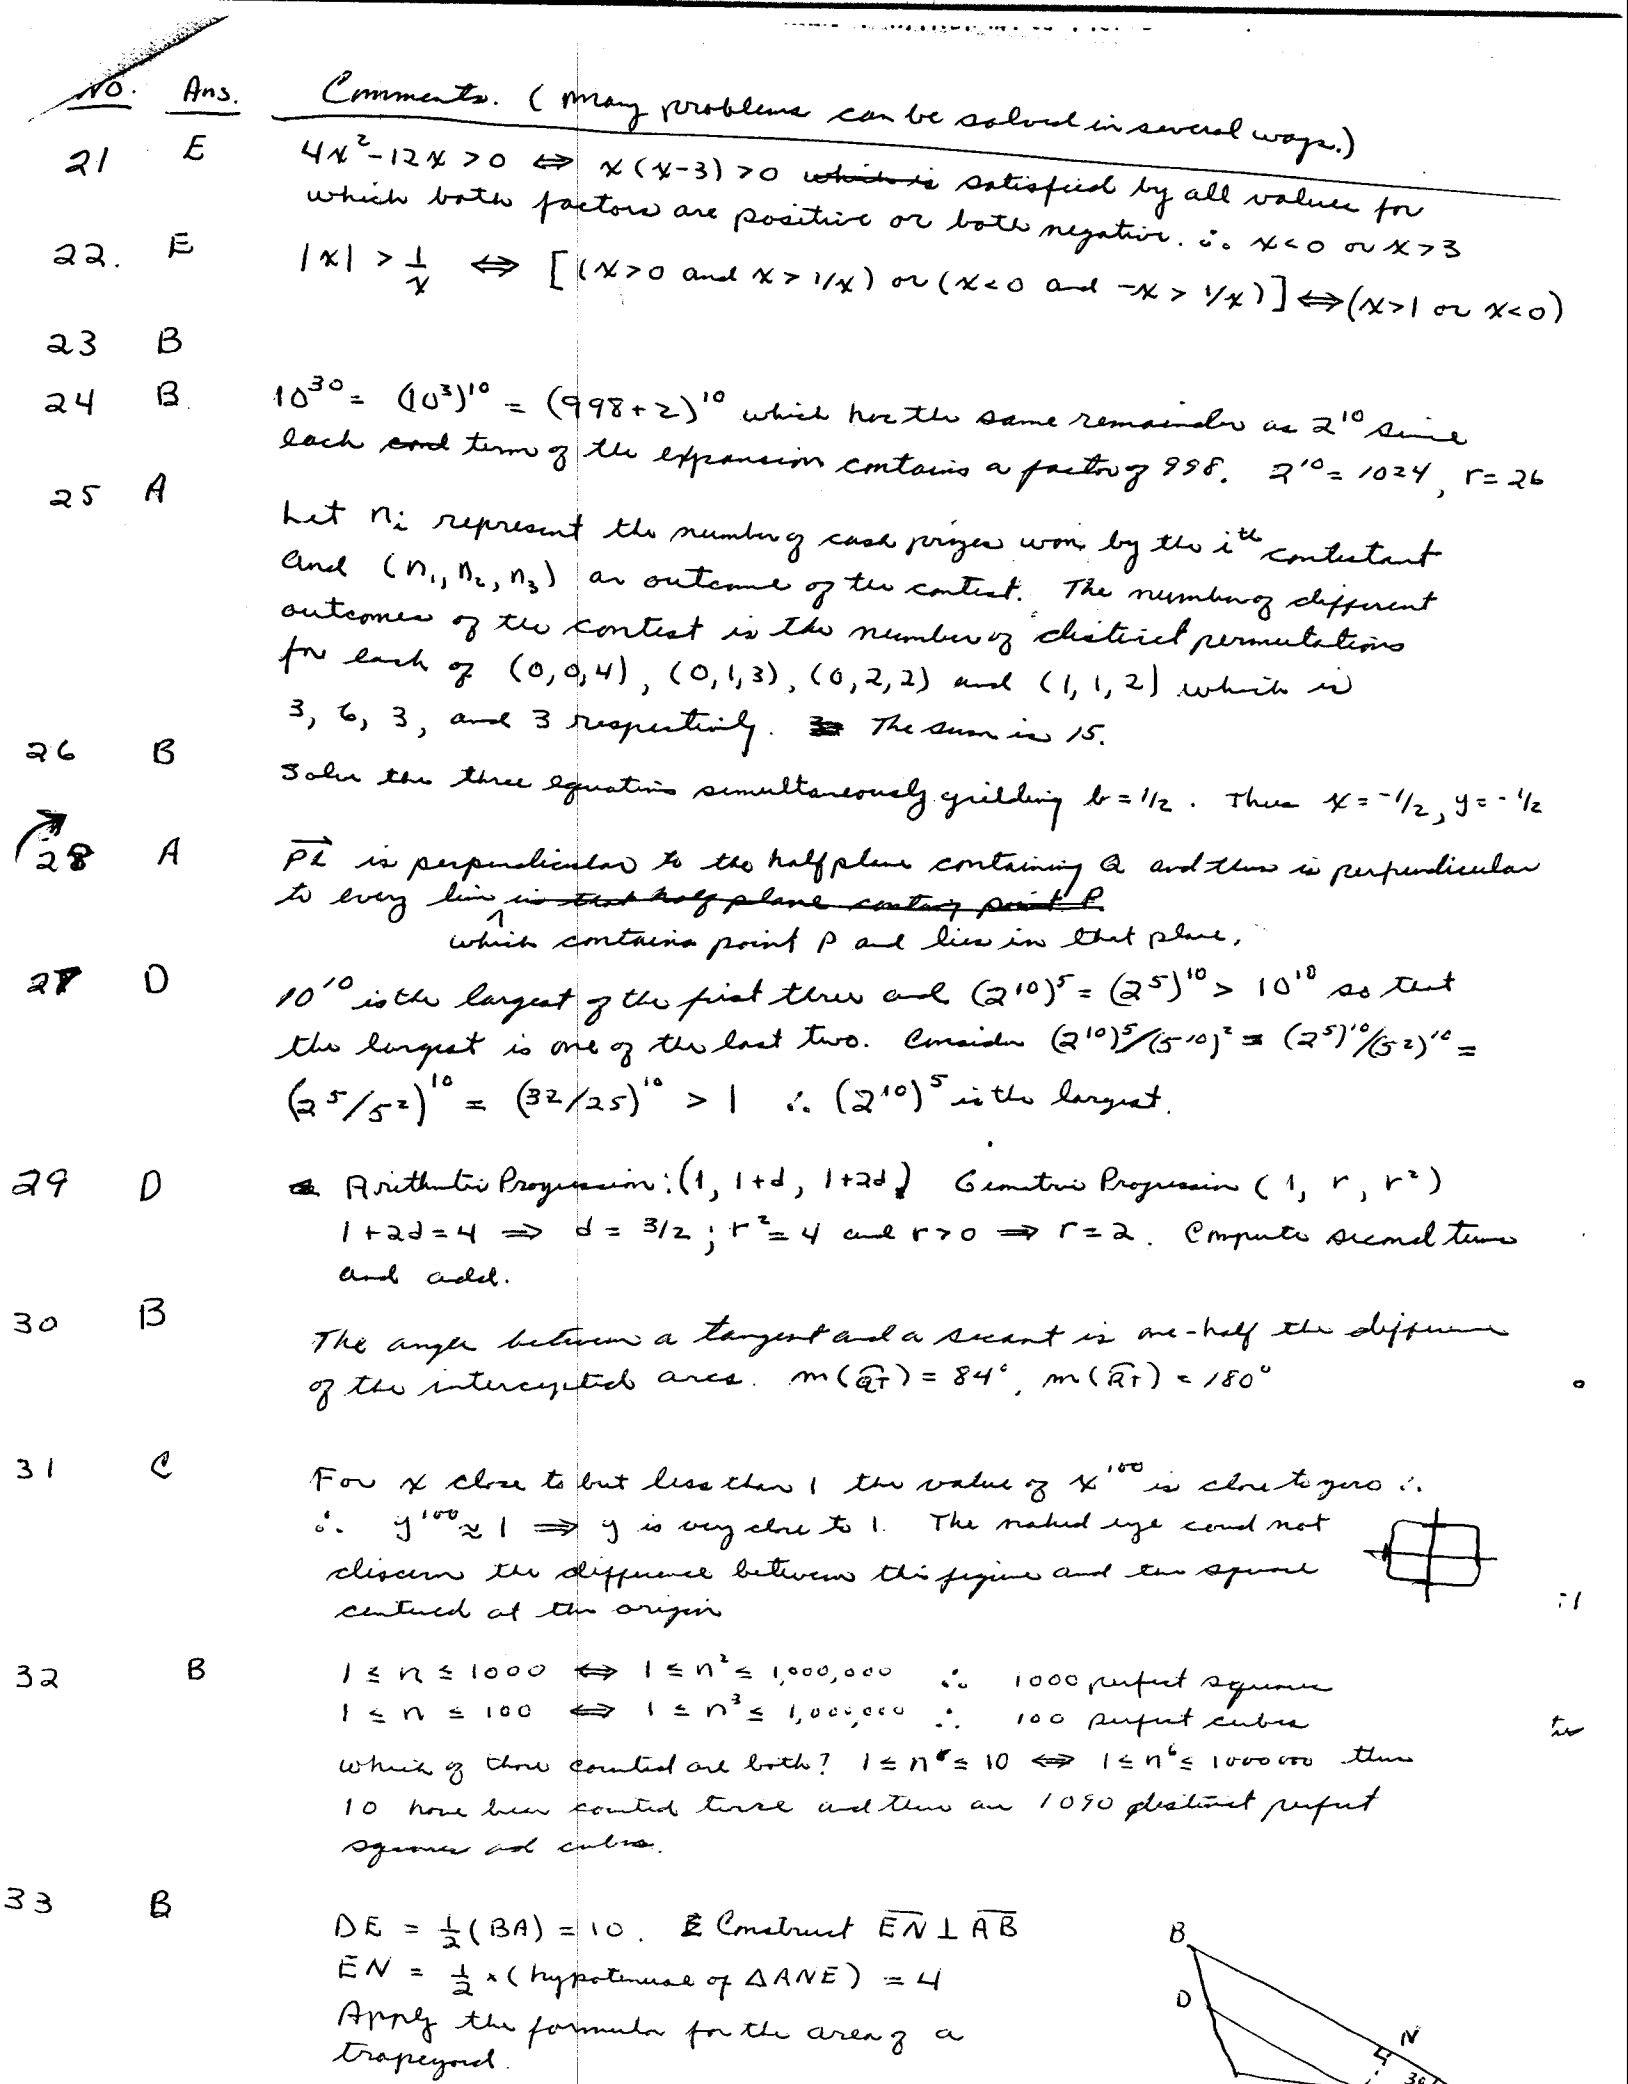 NO. Ans. Comments. (Many problems can be solved in several ways.)
21 E 4x²-12x>0 ⇔ x(x-3)>0 which is satisfied by all values for
which both factors are positive or both negative. ∴ x<0 or x>3
22. E |x| > 1/x ⇔ [(x>0 and x>1/x) or (x<0 and -x>1/x)] ⇔ (x>1 or x<0)
23 B
24 B. 10³⁰ = (10³)¹⁰ = (998+2)¹⁰ which has the same remainder as 2¹⁰ since
each term of the expansion contains a factor of 998. 2¹⁰ = 1024, r=26
25 A
Let nᵢ represent the number of cash prizes won by the iᵗʰ contestant
and (n₁, n₂, n₃) an outcome of the contest. The number of different
outcomes of the contest is the number of distinct permutations
for each of (0,0,4), (0,1,3), (0,2,2) and (1,1,2) which is
3, 6, 3, and 3 respectively. The sum is 15.
26 B
Solve the three equations simultaneously yielding b = 1/2. Thus x = -1/2, y = -1/2
28 A PL is perpendicular to the halfplane containing Q and thus is perpendicular
to every line in that half plane containing point P.
which contains point P and lies in that plane.
27 D 10¹⁰ is the largest of the first three and (2¹⁰)⁵ = (2⁵)¹⁰ > 10¹⁰ so that
the largest is one of the last two. Consider (2¹⁰)⁵/(5¹⁰)² = (2⁵)¹⁰/(5²)¹⁰ =
(2⁵/5²)¹⁰ = (32/25)¹⁰ > 1 ∴ (2¹⁰)⁵ is the largest.
29 D Arithmetic Progression: (1, 1+d, 1+2d) Geometric Progression (1, r, r²)
1+2d=4 ⇒ d = 3/2; r²=4 and r>0 ⇒ r=2. Compute second terms
and add.
30 B
The angle between a tangent and a secant is one-half the difference
of the intercepted arcs. m(QT) = 84°, m(RT) = 180°
31 C For x close to but less than 1 the value of x¹⁰⁰ is close to zero ∴
∴ y¹⁰⁰ ≈ 1 ⇒ y is very close to 1. The naked eye coud not
discern the difference between this figure and the square
centered at the origin
:1
32 B 1 ≤ n ≤ 1000 ⇔ 1 ≤ n² ≤ 1,000,000 ∴ 1000 perfect squares
1 ≤ n ≤ 100 ⇔ 1 ≤ n³ ≤ 1,000,000 ∴ 100 perfect cubes
which of those counted are both? 1 ≤ n ≤ 10 ⇔ 1 ≤ n⁶ ≤ 1000000 thus
10 have been counted twice and thus are 1090 distinct perfect
squares and cubes.
33 B
DE = ½(BA) = 10. Construct EN ⊥ AB
EN = ½ × (hypotenuse of △ANE) = 4
Apply the formula for the area of a
trapezoid.
B
D
N
30